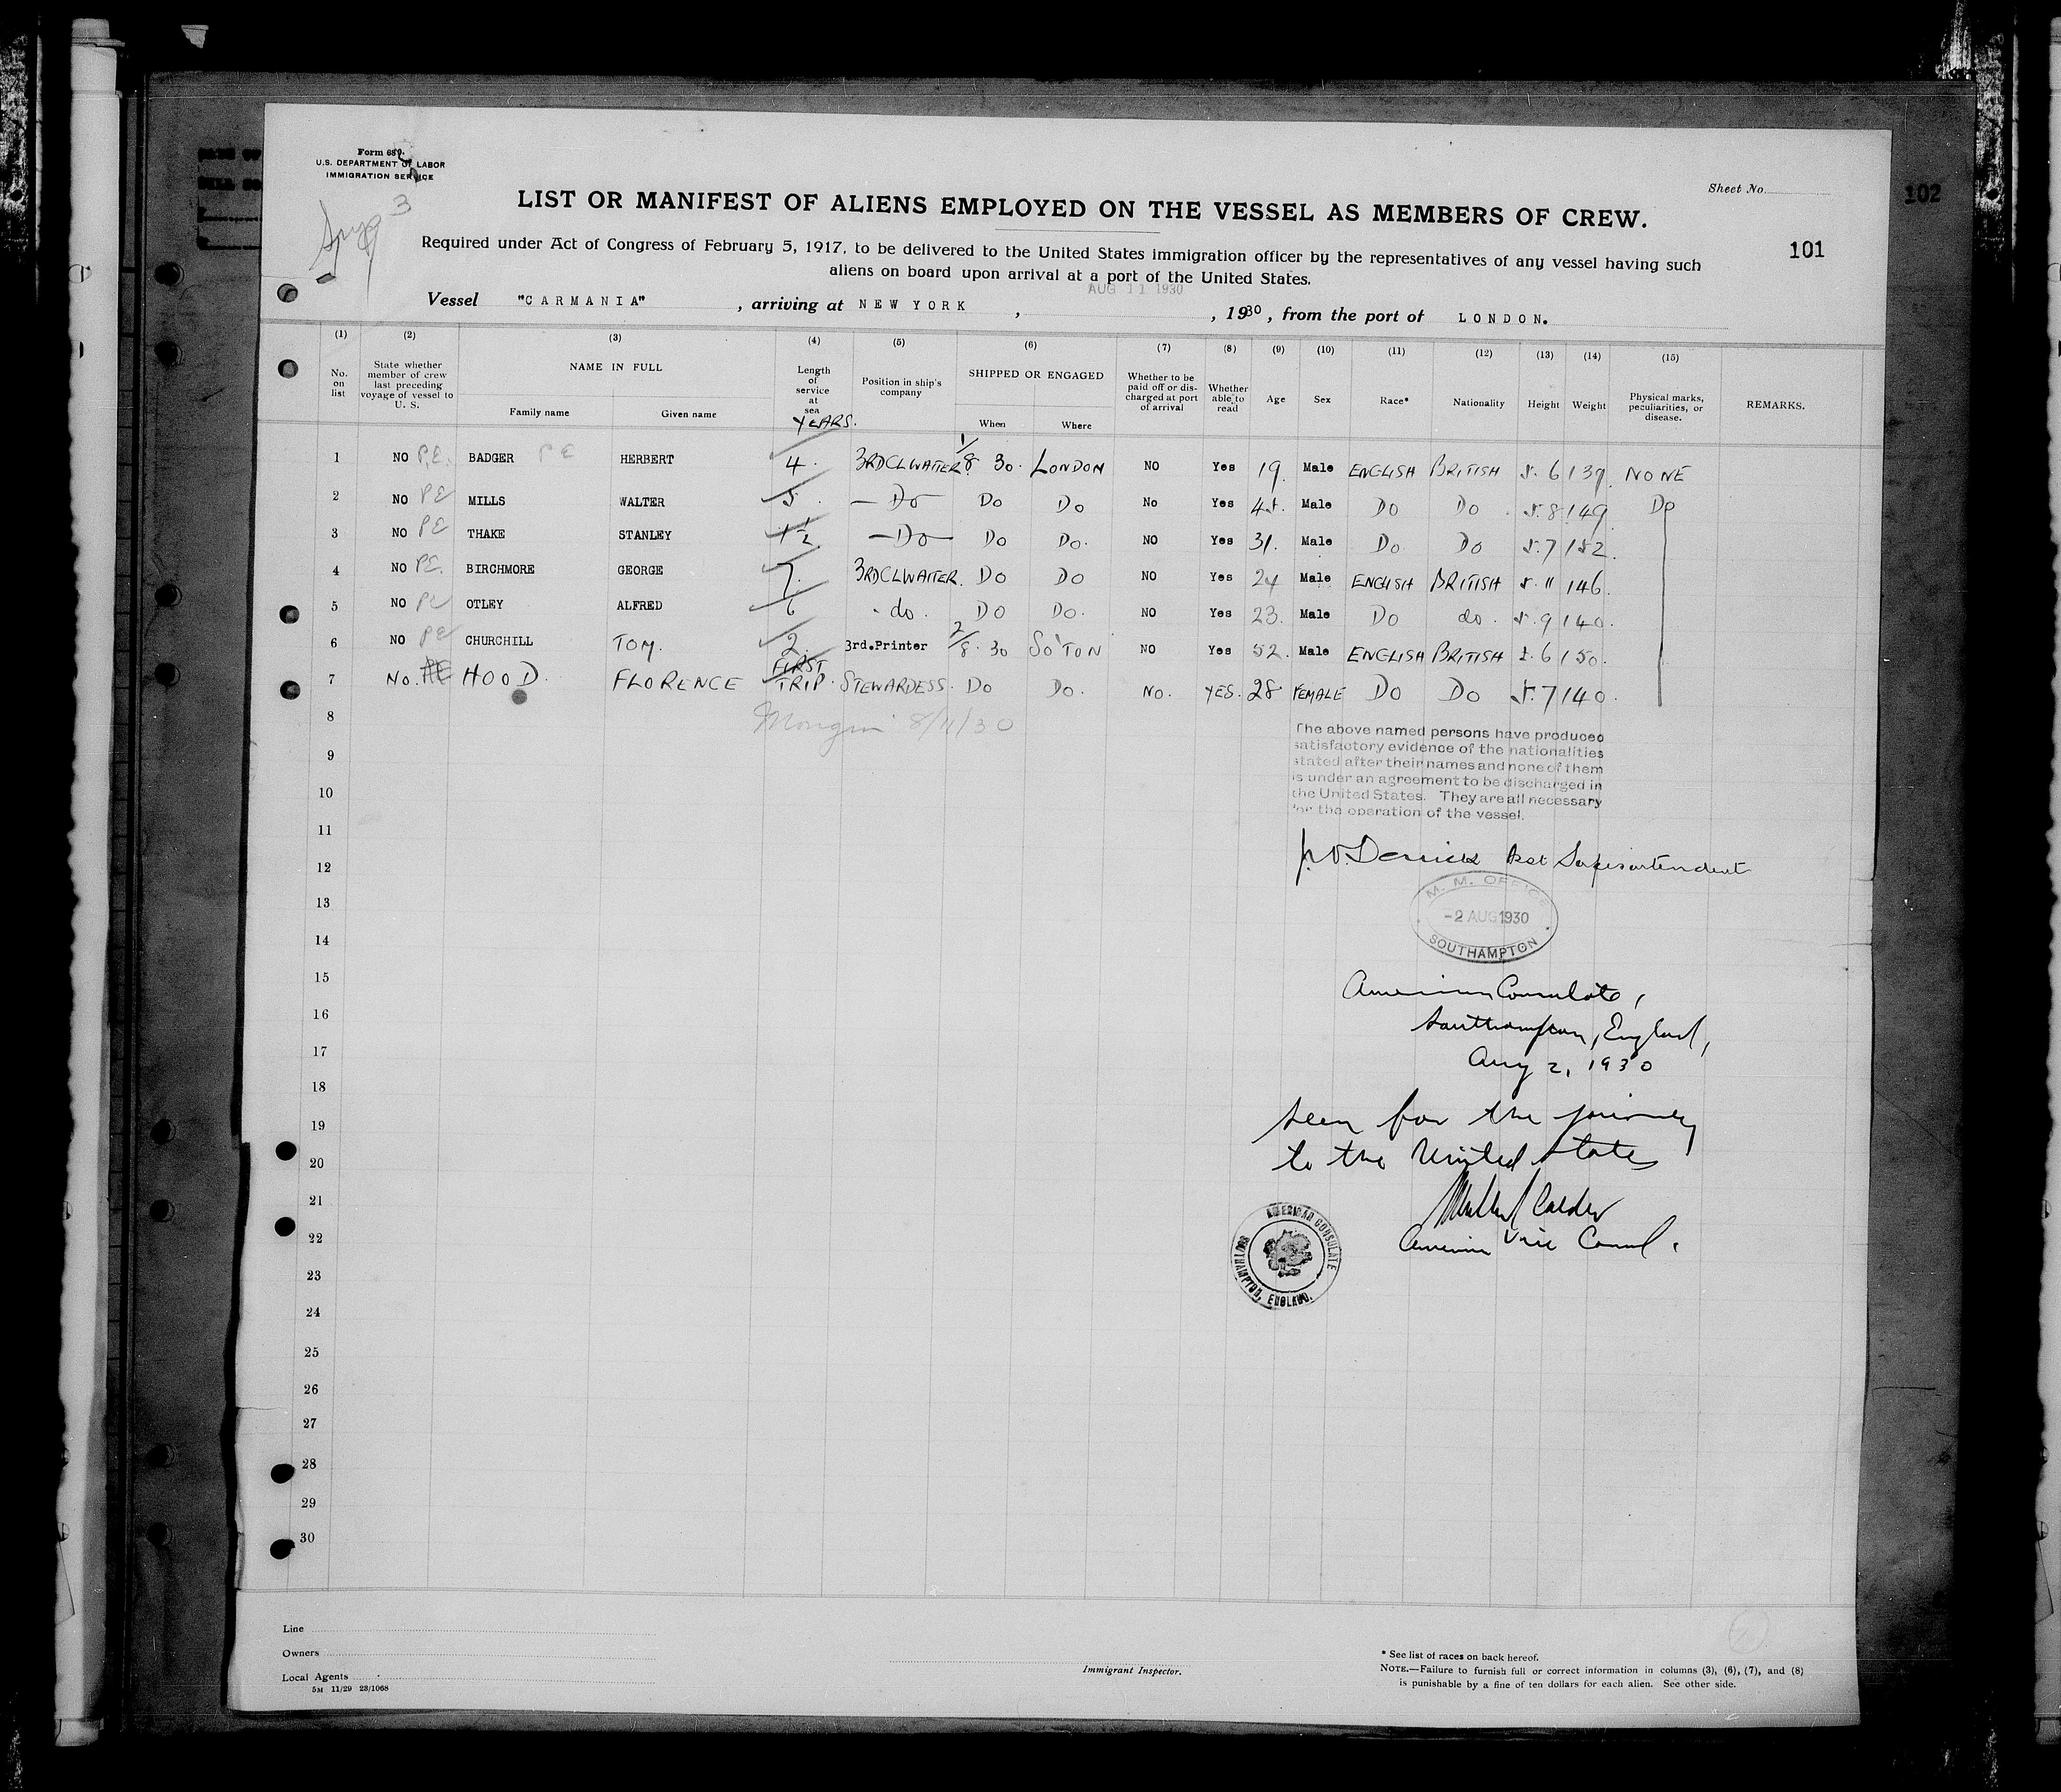 Form 680.
U.S. DEPARTMENT OF LABOR
IMMIGRATION SERVICE
3
Sheet No.
102
LIST OR MANIFEST OF ALIENS EMPLOYED ON THE VESSEL AS MEMBERS OF CREW.
101
Required under Act of Congress of February 5, 1917, to be delivered to the United States immigration officer by the representatives of any vessel having such
aliens on board upon arrival at a port of the United States.
AUG 11 1930
Vessel "CARMANIA", arriving at NEW YORK, , 1930, from the port of LONDON.
(1) (2) (3) (4) (5) (6) (7) (8) (9) (10) (11) (12) (13) (14) (15)
No. on list State whether member of crew last preceding voyage of vessel to U. S. NAME IN FULL Family name Given name Length of service at sea YEARS. Position in ship's company SHIPPED OR ENGAGED When Where Whether to be paid off or discharged at port of arrival Whether able to read Age Sex Race* Nationality Height Weight Physical marks, peculiarities, or disease. REMARKS.
1 NO P.E. BADGER P E HERBERT 4. 3RDCLWAITER 1/8 30. LONDON NO Yes 19. Male ENGLISH BRITISH 5. 6 139. NONE
2 NO PE MILLS WALTER 5. — Do — Do Do No Yes 45. Male Do Do. 5. 8 149 Do
3 NO PE THAKE STANLEY 1½ — Do — Do Do. NO Yes 31. Male Do Do 5. 7 152.
4 NO PE. BIRCHMORE GEORGE 7. 3RDCLWAITER. Do Do NO Yes 24 Male ENGLISH BRITISH 5. 11 146.
5 NO PE OTLEY ALFRED 6 - do. DO DO. NO Yes 23. Male Do do. 5. 9 140.
6 NO PE CHURCHILL TOM. 2. 3rd.Printer 2/8. 30 SO'TON NO Yes 52. Male ENGLISH BRITISH 5. 6 150.
7 No. PE HOOD. FLORENCE FIRST TRIP. STEWARDESS. Do Do. No. YES. 28 FEMALE Do Do 5. 7 140.
8 8/11/30
9
10
11
12
13
14
15
16
17
18
19
20
21
22
23
24
25
26
27
28
29
30
The above named persons have produced
satisfactory evidence of the nationalities
stated after their names and none of them
is under an agreement to be discharged in
the United States. They are all necessary
for the operation of the vessel.
Derrick Asst Superintendent
M. M. OFFICE
-2 AUG 1930
SOUTHAMPTON
American Consulate,
Southampton, England,
Aug 2, 1930
Seen for the journey
to the United States
Calder
American Vice Consul.
AMERICAN CONSULATE
SOUTHAMPTON, ENGLAND.
Line
Owners
Local Agents
5M 11/29 23/1068
Immigrant Inspector.
* See list of races on back hereof.
NOTE.—Failure to furnish full or correct information in columns (3), (6), (7), and (8)
is punishable by a fine of ten dollars for each alien. See other side.